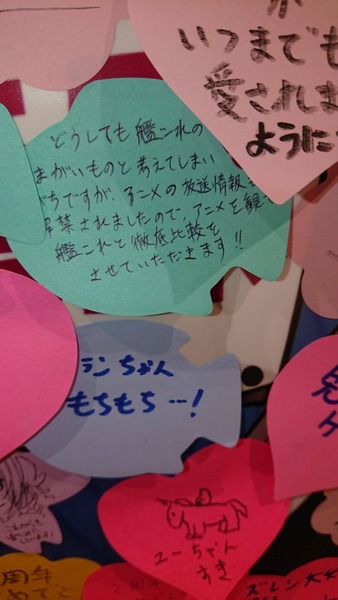 いつまでも
愛されま
ように
どうしても艦これの
まがいものと考えてしまい
がちですが、アニメの放送情報も
解禁されましたので、アニメを観て
艦これと徹底比較を
させていただきます!!
ランちゃん
もちもち…!
ユーちゃん
すき
周年
めでと
ズレン大